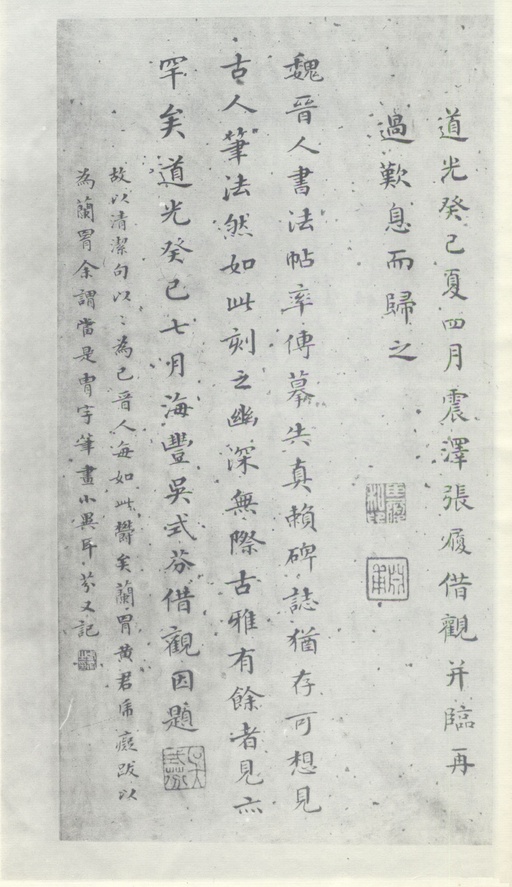 道光癸巳夏四月震澤張履借觀并臨再
過歎息而歸之
魏晉人書法帖率傳摹失真賴碑誌猶存可想見
古人筆法然如此刻之幽深無際古雅有餘者見亦
罕矣道光癸巳七月海豐吳式芬借觀因題
故以清潔句以〻為已晉人每如此鬱矣蘭胃黄君席癡跋以
為蘭胃余謂當是胄字筆畫小異耳芬又記